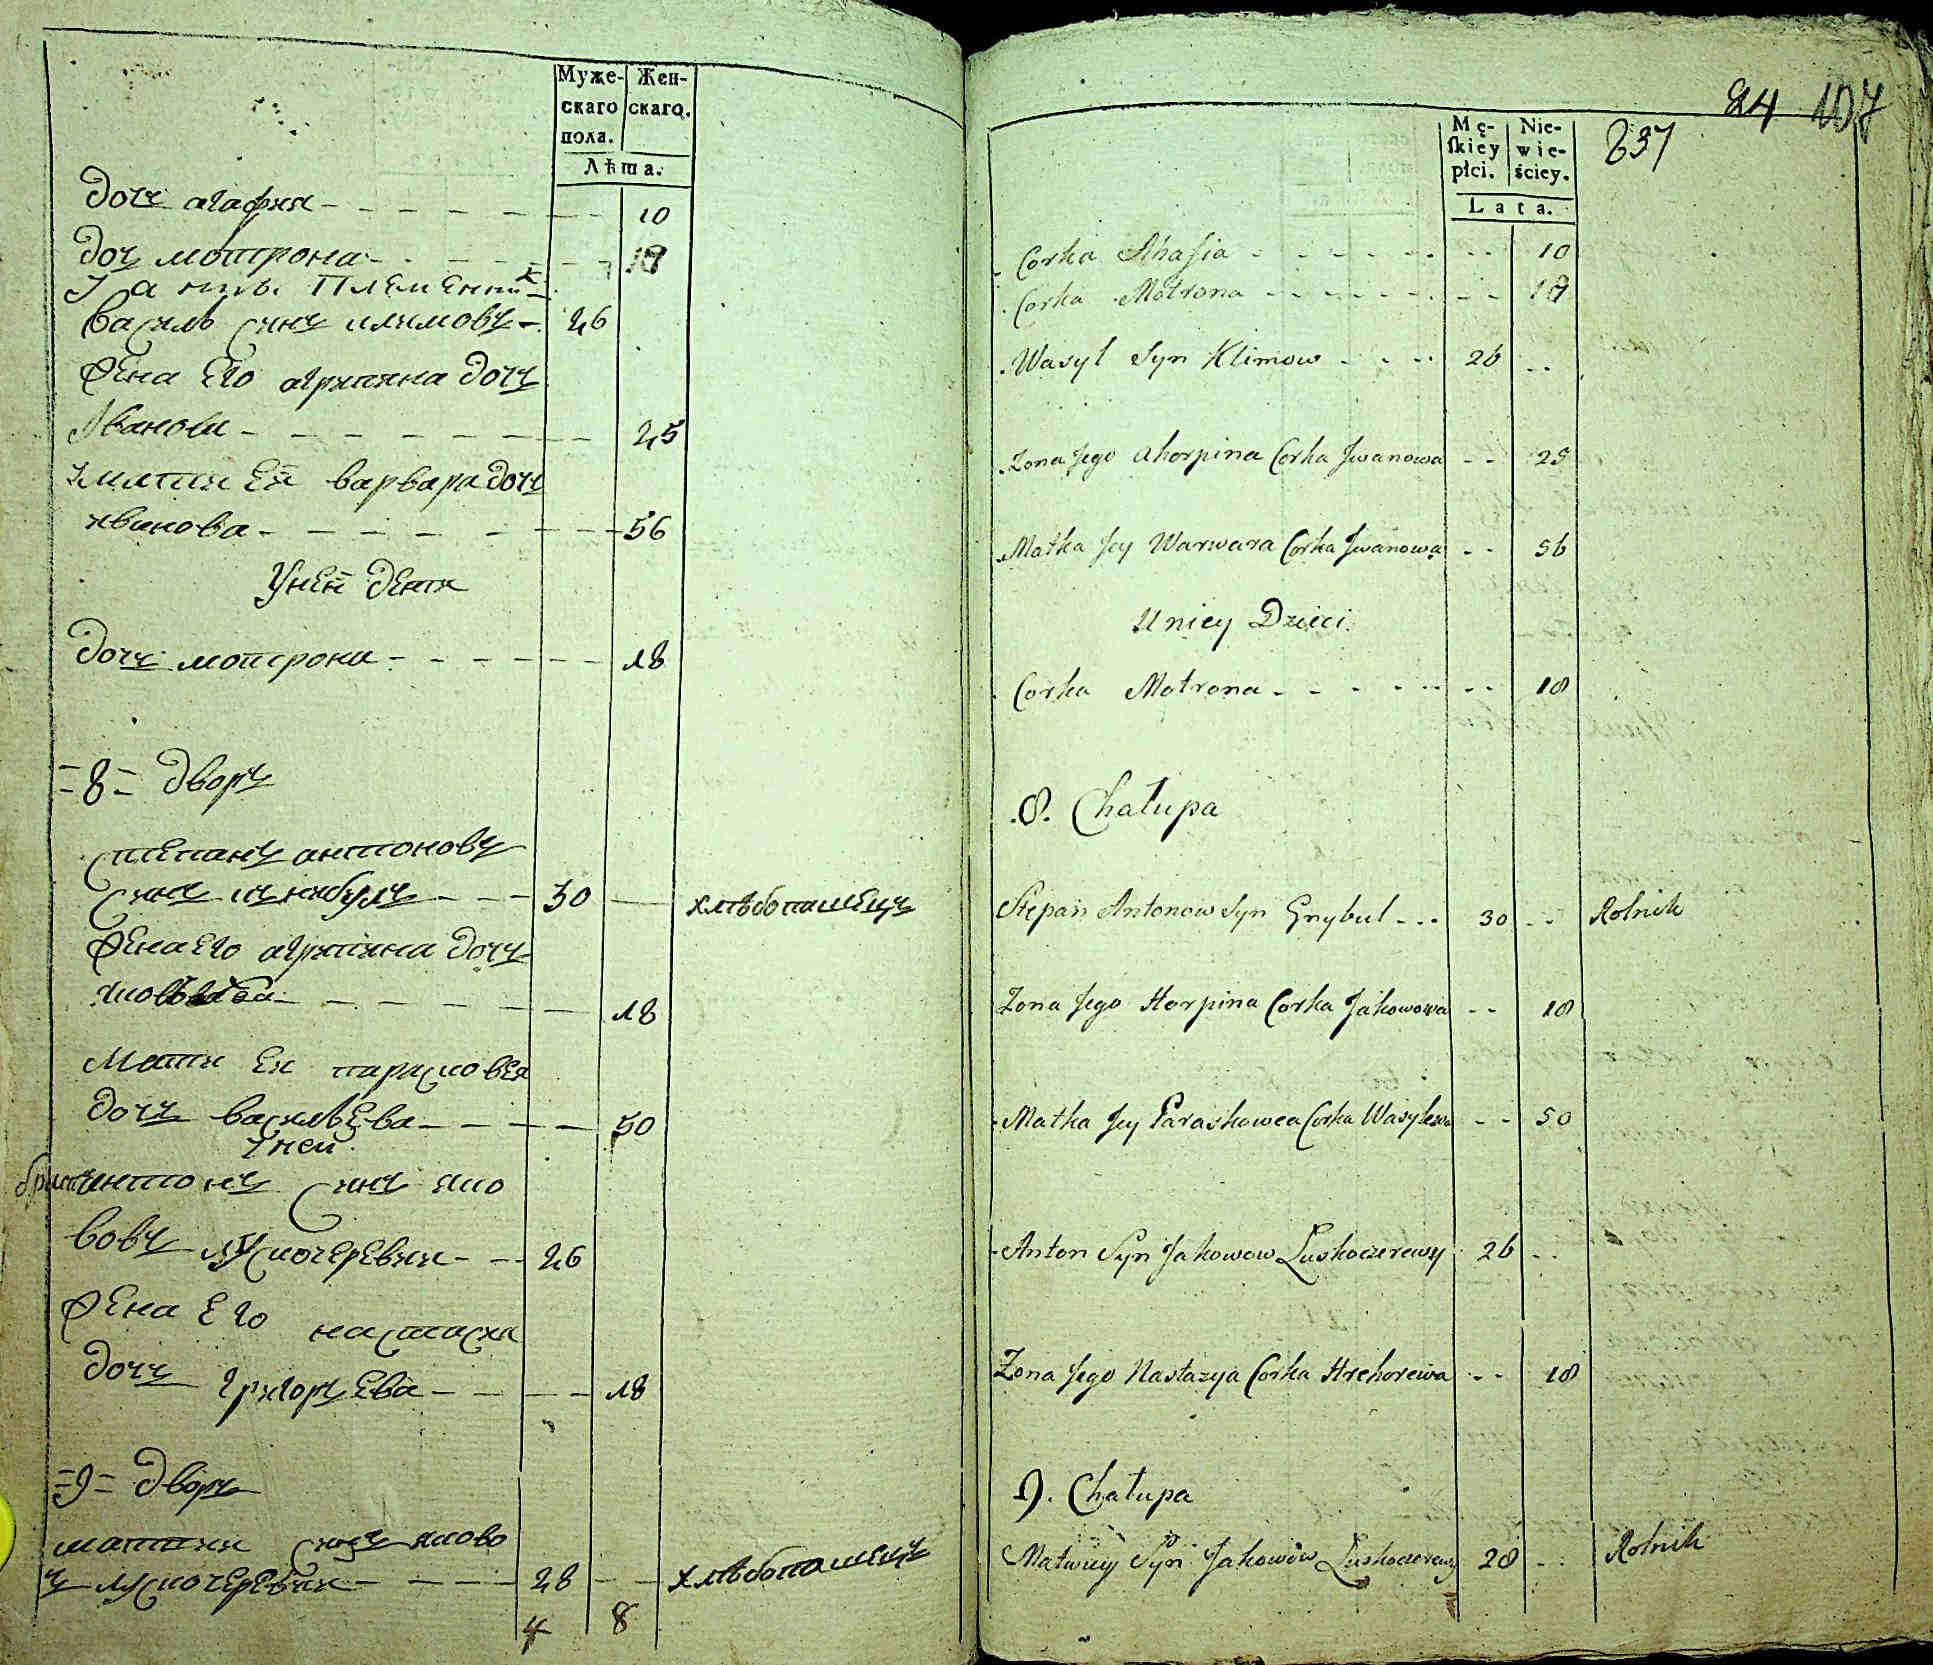 Муже-
скаго
пола.
Жен-
скаго.
Лѣта.
дочъ агафия - - - - - - 10
доч мотрона - - - - - 18
племенник
василь синъ климовъ - 26
жена его агрипина дочъ
иванова - - - - - - - 25
мати ей варвара дочъ
иванова - - - - - - - 56
уней дети
дочъ мотрона - - - - - 18
=8= дворъ
степанъ антоновъ
синъ гнибулъ - - - 30 хлѣбопашецъ
жена его агрипина дочъ
18
мати ей парасковея
дочъ василѣева - - - - 50
уней
братъ антонъ синъ яко
вовъ лускочеревии - - 26
жена его настасия
дочъ григоръева - - - - 18
=9= дворъ
матвии синъ яково
въ лускочеревии - - - - 28 - - хлѣбопашецъ
4 8
84 107
Mę-
skiey
płci.
Nie-
wie-
ściey.
Lata.
837
Corka Ahafia - - - - - - - 10
Corka Motrona - - - - - - - 18
Wasyl Syn Klimow - - - 26 - -
Zona Jego Ahorpina Corka Jwanowa - - 25
Matka Jey Warwara Corka Jwanowa - - 56
Uniey Dzieci
Corka Motrona - - - - - - - 18
.8. Chałupa
Stepan Antonow Syn Gnybul - - - 30 - - Rolnik
Zona Jego Horpina Corka Jakowowa - - 18
Matka Jey Paraskowea Corka Wasylewa - - 50
Anton Syn Jakowow Luskoczerewy 26 - -
Zona Jego Nastazya Corka Hrehorewa - - 18
9. Chałupa
Matwiey Syn Jakowow Luskoczerewy 28 - - Rolnik